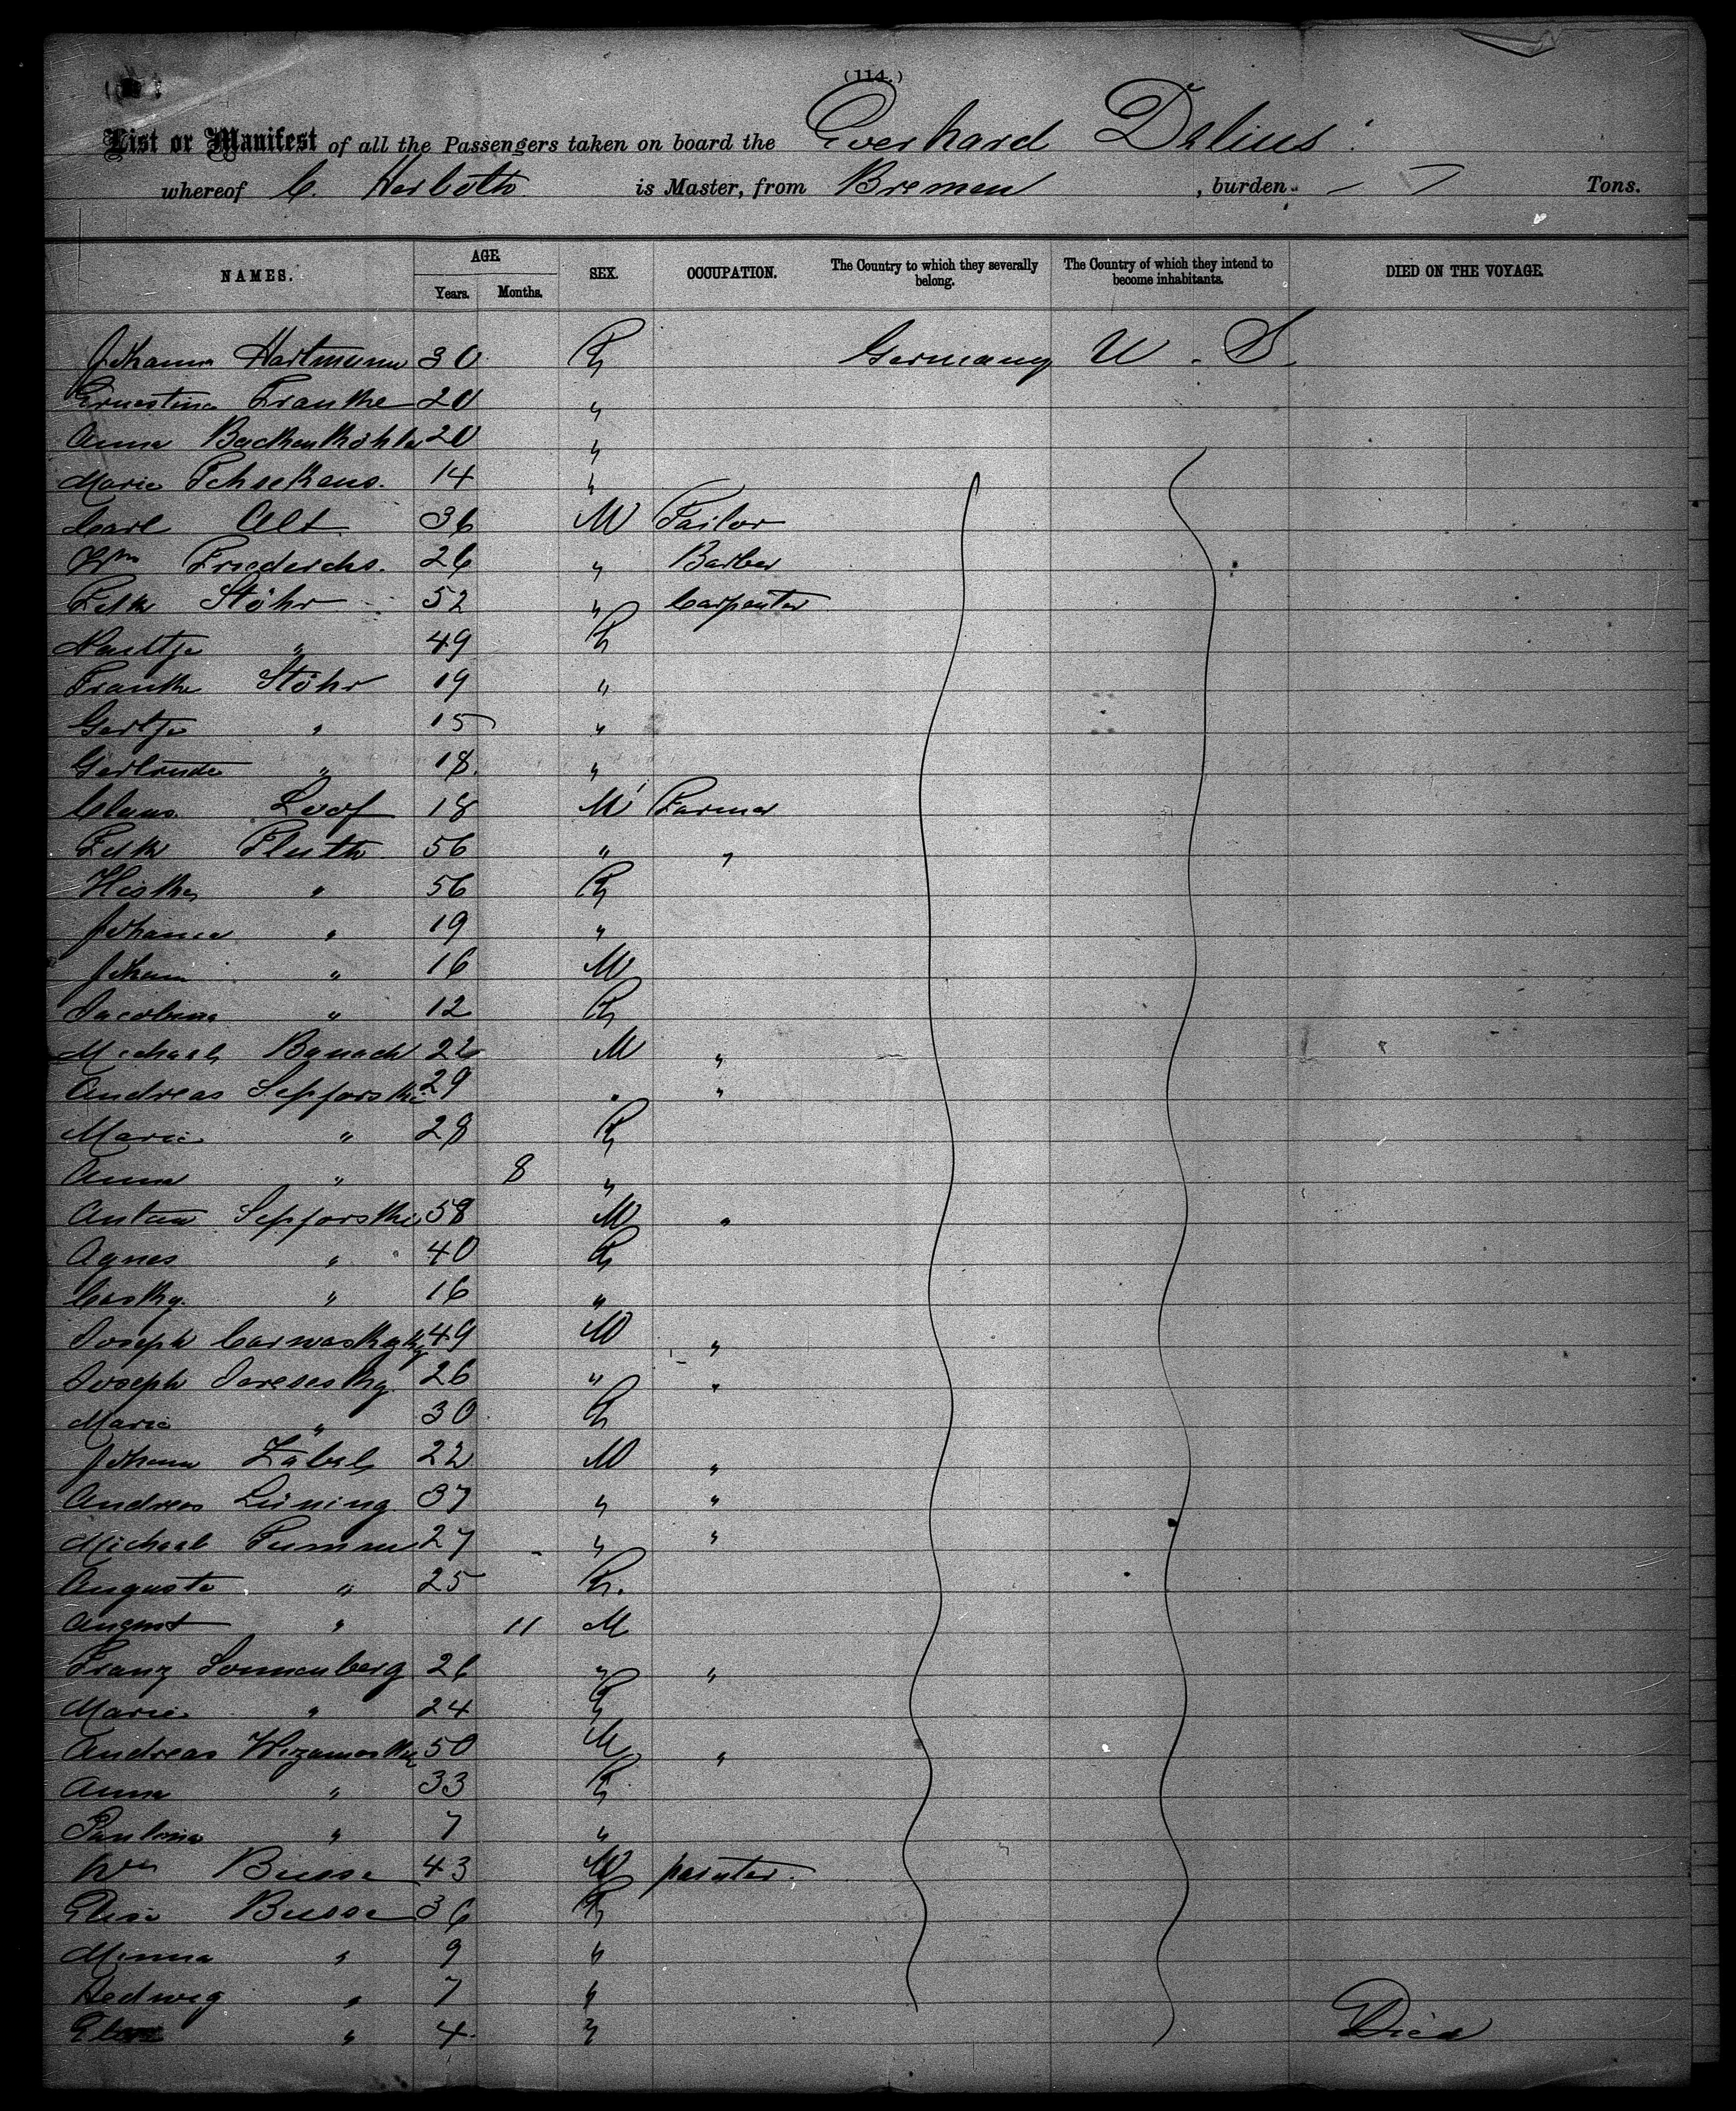 (114.)
List or Manifest of all the Passengers taken on board the Everhard Delius.
whereof C. Herboth is Master, from Bremen, burden - Tons.
NAMES. AGE. Years. Months. SEX. OCCUPATION. The Country to which they severally belong. The Country of which they intend to become inhabitants. DIED ON THE VOYAGE.
Johanna Hartmann 30 F Germany U. S
Ernestine Franke 20 "
Anna Backenköhler 20 "
Marie 14 "
Carl Alt 36 M Tailor
Wm Friederichs. 26 " Barber
Stöhr 52 " Carpenter
" 49 F
Frauke Stöhr 19 "
Gertje " 15 "
Gertrude " 18 "
Claus Loof 18 M Farmer
56 " "
" 56 F
Johanna " 19 "
Johann " 16 M
Jacobine " 12 F
Michael Banach 22 M "
Andreas Sepforski 29 " "
Marie " 28 F
Anna " 8 "
Anton Sepforski 58 M "
Agnes " 40 F
" 16 "
Joseph 49 M "
Joseph 26 " "
Marie " 30 F
Johann Zabel 22 M "
Andreas Lüning 37 " "
Michael Tumm 27 " "
Auguste " 25 F.
August " 11 M
Franz Sonnenberg 26 " "
Marie " 24 F
Andreas 50 M "
Anna " 33 F
Paulina " 7 "
Wm Busse 43 M painter.
Elise Busse 36 F
Minna " 9 "
Hedwig " 7 "
" 4 " Died